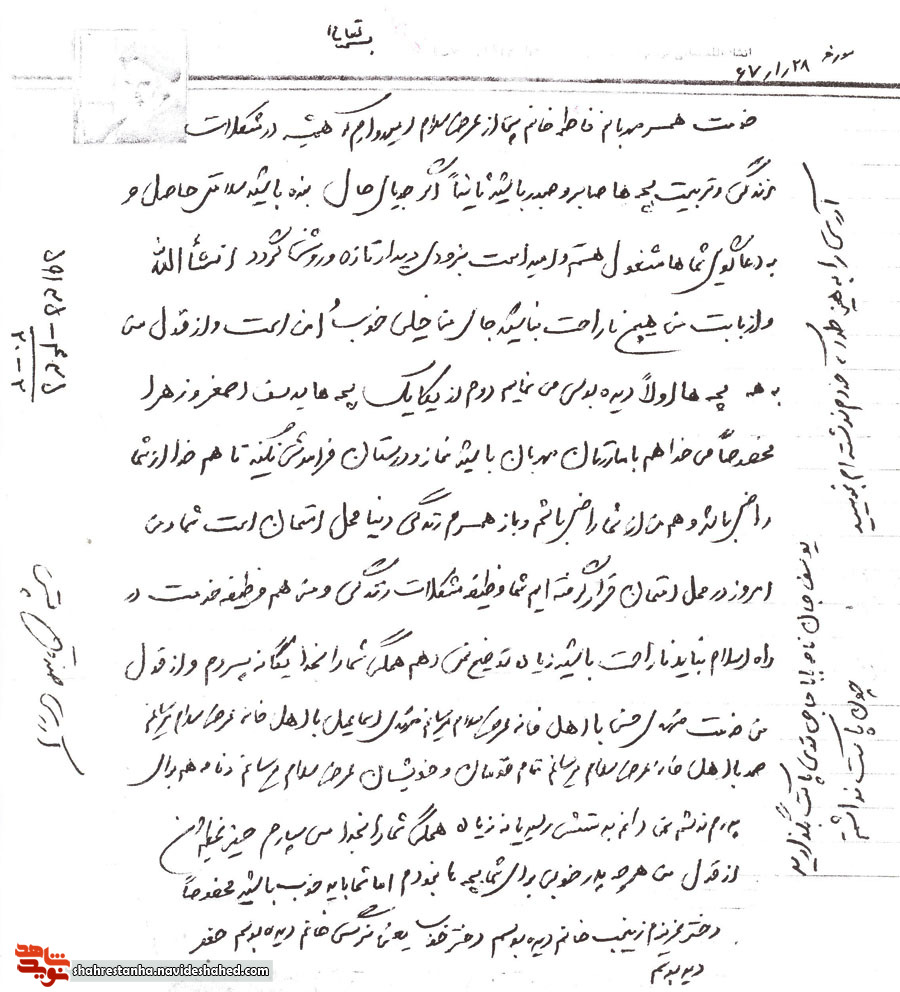 بسمه تعالی
مورخه ۶۷/۱/۲۸
خدمت همسر مهربانم فاطمه خانم پس از عرض سلام امیدوارم که همیشه در مشکلات
زندگی و تربیت بچه ها صابر و صبور باشید ثانیاً اگر جویای حال بنده باشید سلامتی حاصل و
به دعاگوی شماها مشغول هستم و امید است بزودی دیدار تازه و روشن گردد انشأالله
و از بابت من هیچ ناراحت نباشید جای من خیلی خوب و امن است و از قول من
به همه بچه ها اولاً دیده بوسی می نمایم دوم از یکایک بچه ها یوسف اصغر و زهرا
مخصوصاً می خواهم با مادرتان مهربان باشید نماز و درستان فراموش نکنید تا هم خدا از شما
راضی باشد و هم من از شما راضی باشم و باز همسرم زندگی دنیا محل امتحان است شما و من
امروز در محل امتحان قرار گرفته ایم شما وظیفه مشکلات زندگی و من هم وظیفه خدمت در
راه اسلام نباید ناراحت باشید زیاد توضیح نمی دهم همگی شما را بخدا یگانه سپردم و از قول
من خدمت مشهدی حسن با اهل خانه عرض سلام می رسانم مشهدی اسماعیل با اهل خانه عرض سلام می رسانم
با اهل خانه عرض سلام می رسانم تمام قومان و خویشان عرض سلام می رسانم و نامه هم برای
پدرم نوشتم نمی دانم به دستش رسید یا نه زیاد همگی شما را بخدا می سپارم
از قول من هر چه پدر خوبی برای شما بچه ها نبودم اما شما باید خوب باشید مخصوصاً
دختر عزیزم زینب خانم دیده بوسم دختر خوب یعنی نرگس خانم دیده بوسم
دیده بوسم
آدرس را به همین طور که خودم نوشته ام بنویسید
یوسف جان نامه بابا جان توی پاکت بگذارید
چون پاکت نداشتم
آدرس صندوق پستی
نوید شاهد
shahrestanha.navideshahed.com